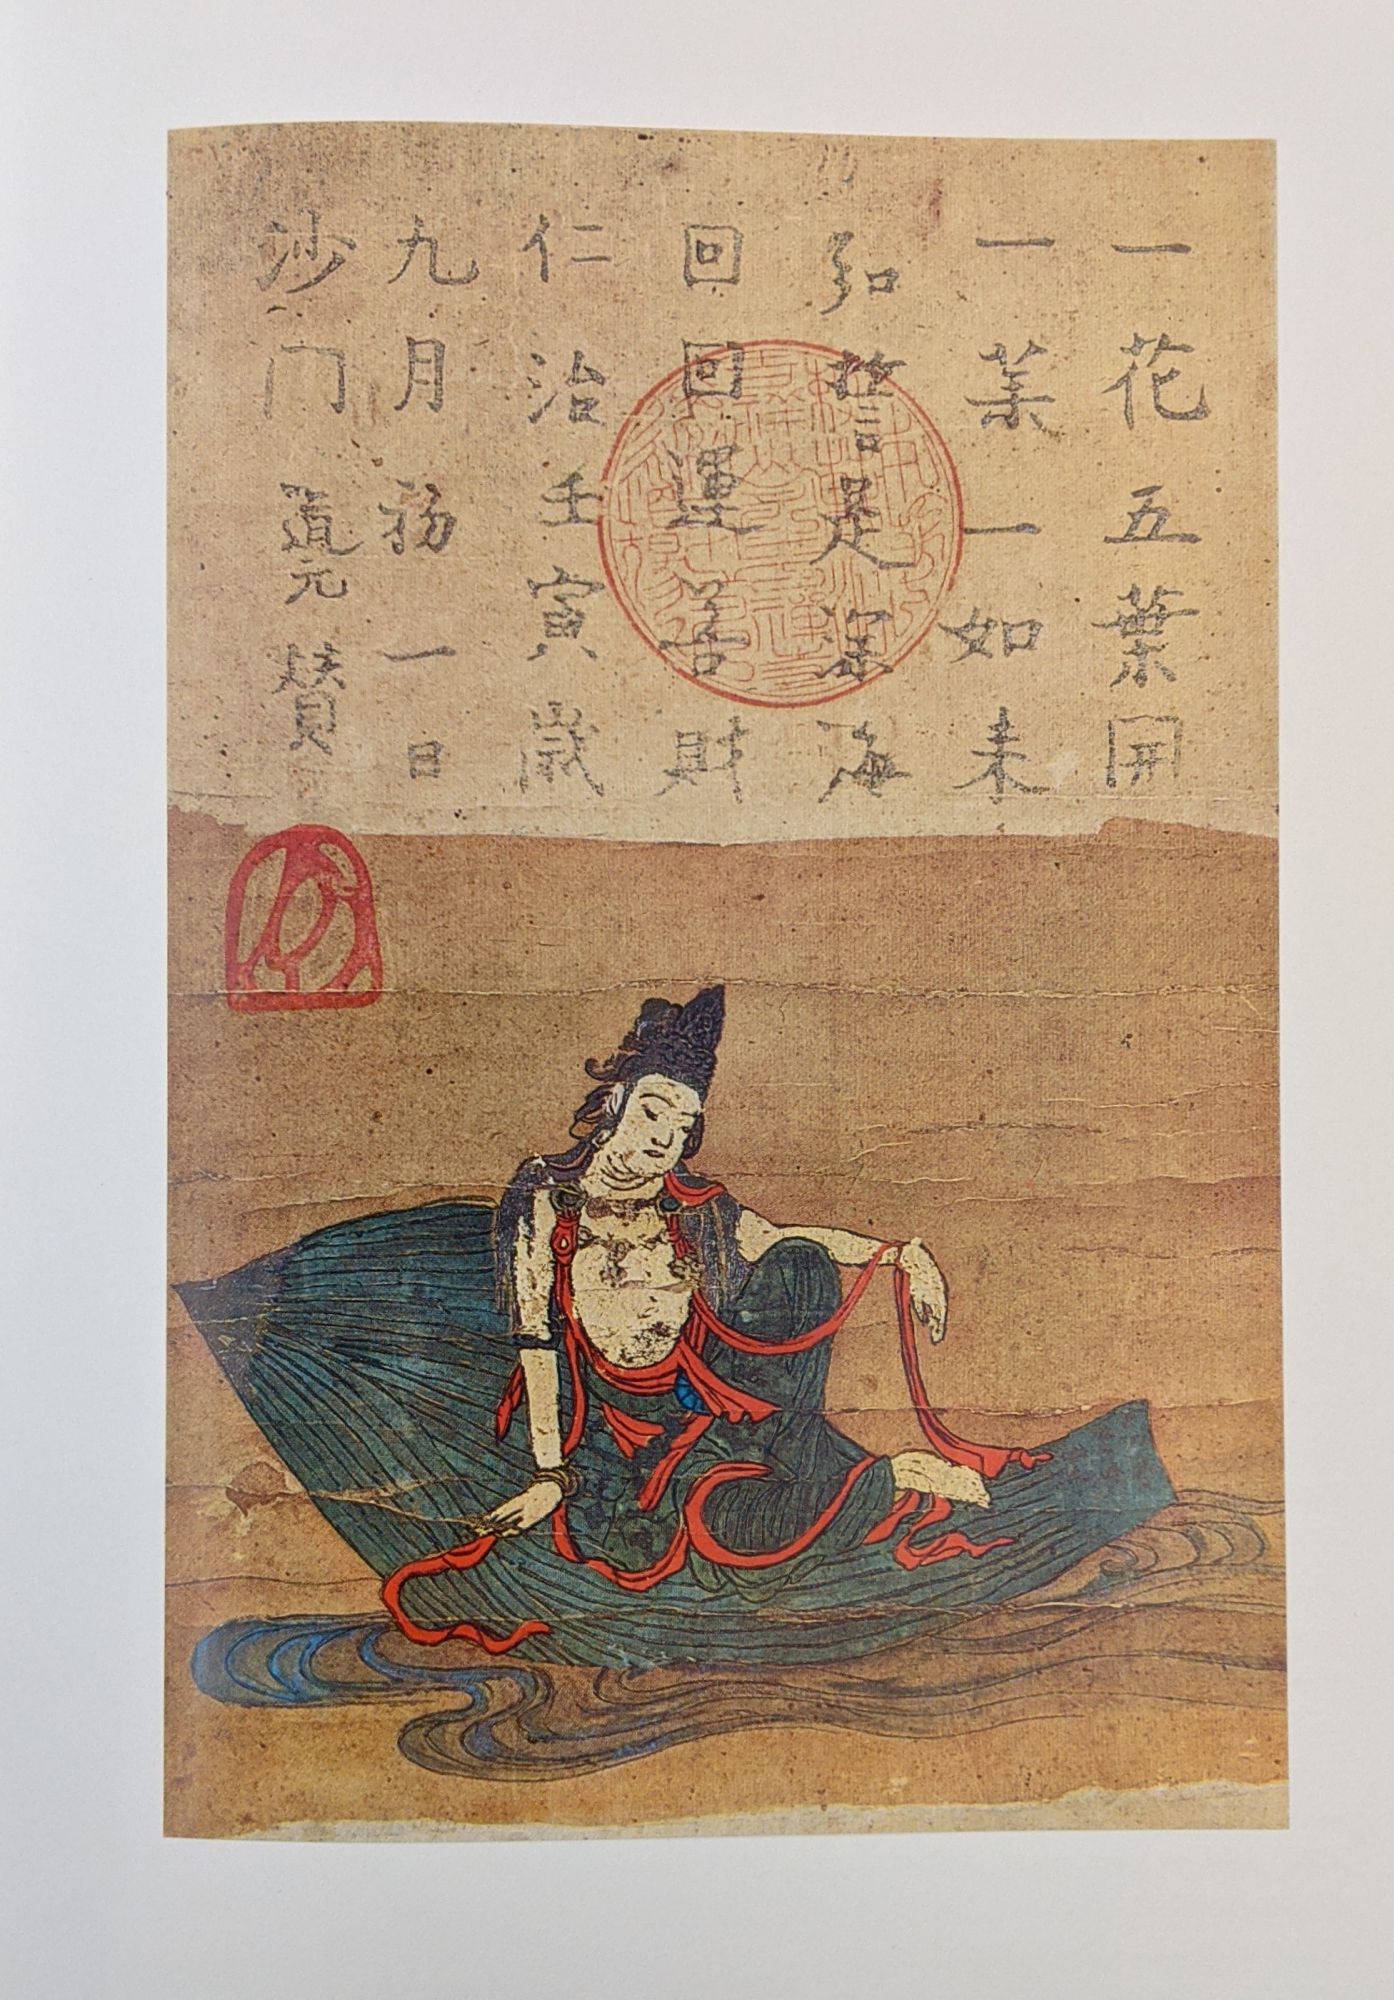 一花五葉開
一葉一如来
弘誓是深海
回回運善財
仁治壬寅歳
九月初一日
沙门道元賛